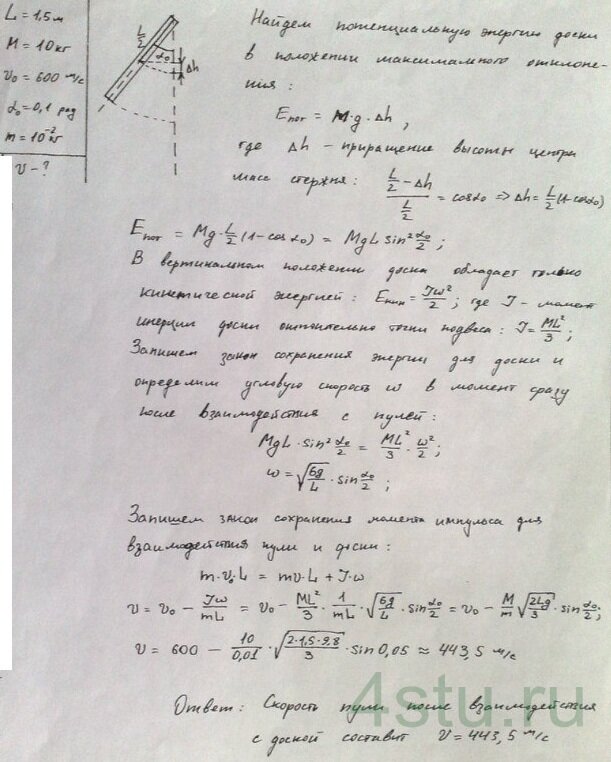 L = 1,5 м
M = 10 кг
v₀ = 600 м/с
α₀ = 0,1 рад
m = 10⁻² кг
v - ?
L/2
α₀
Δh
Найдем потенциальную энергию доски
в положении максимального отклоне-
ния :
Eпот = M·g·Δh ,
где Δh - приращение высоты центра
масс стержня : (L/2 - Δh)/(L/2) = cosα₀ => Δh = L/2 (1-cosα₀)
Eпот = Mg·L/2 (1-cosα₀) = MgL sin² α₀/2 ;
В вертикальном положении доска обладает только
кинетической энергией : Eкин = Jω²/2 ; где J - момент
инерции доски относительно точки подвеса : J = ML²/3 ;
Запишем закон сохранения энергии для доски и
определим угловую скорость ω в момент сразу
после взаимодействия с пулей :
MgL · sin² α₀/2 = ML²/3 · ω²/2 ;
ω = √(6g/L) · sin α₀/2 ;
Запишем закон сохранения момента импульса для
взаимодействия пули и доски :
m·v₀·L = mv·L + J·ω
v = v₀ - Jω/mL = v₀ - ML²/3 · 1/mL · √(6g/L) · sin α₀/2 = v₀ - M/m √(2Lg/3) · sin α₀/2 ;
v = 600 - 10/0,01 · √(2·1,5·9,8/3) · sin 0,05 ≈ 443,5 м/с
Ответ : Скорость пули после взаимодействия
с доской составит v = 443,5 м/с
4stu.ru